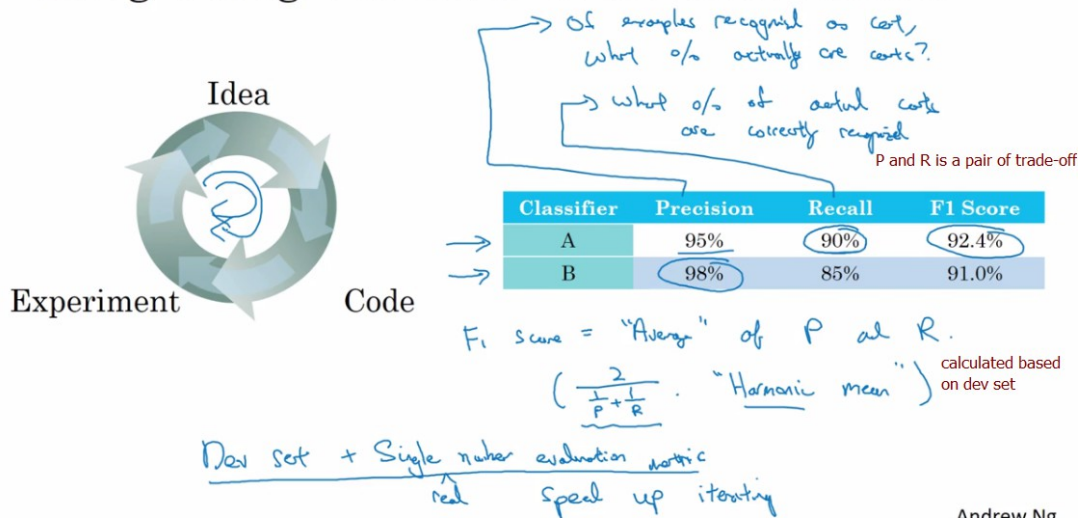 Of examples recognized as cat,
what % actually are cats?
what % of actual cats
are correctly recognized
P and R is a pair of trade-off
Idea
Experiment
Code
Classifier Precision Recall F1 Score
A 95% 90% 92.4%
B 98% 85% 91.0%
F1 score = "Average" of P and R.
( 2 / (1/P + 1/R) . "Harmonic mean" )
calculated based
on dev set
Dev set + Single number evaluation metric
real
speed up iterating
Andrew Ng